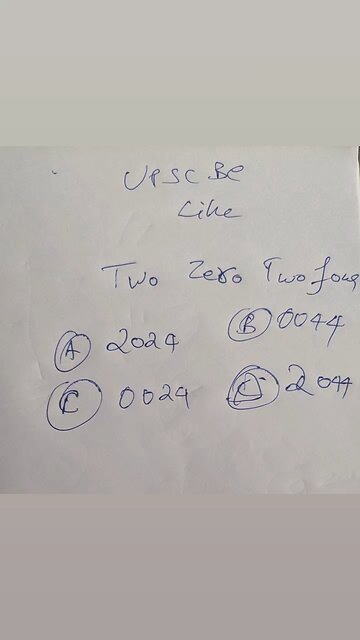 UPSC BE
Like
Two Zero Two four
A 2024
B 0044
C 0024
D 2044